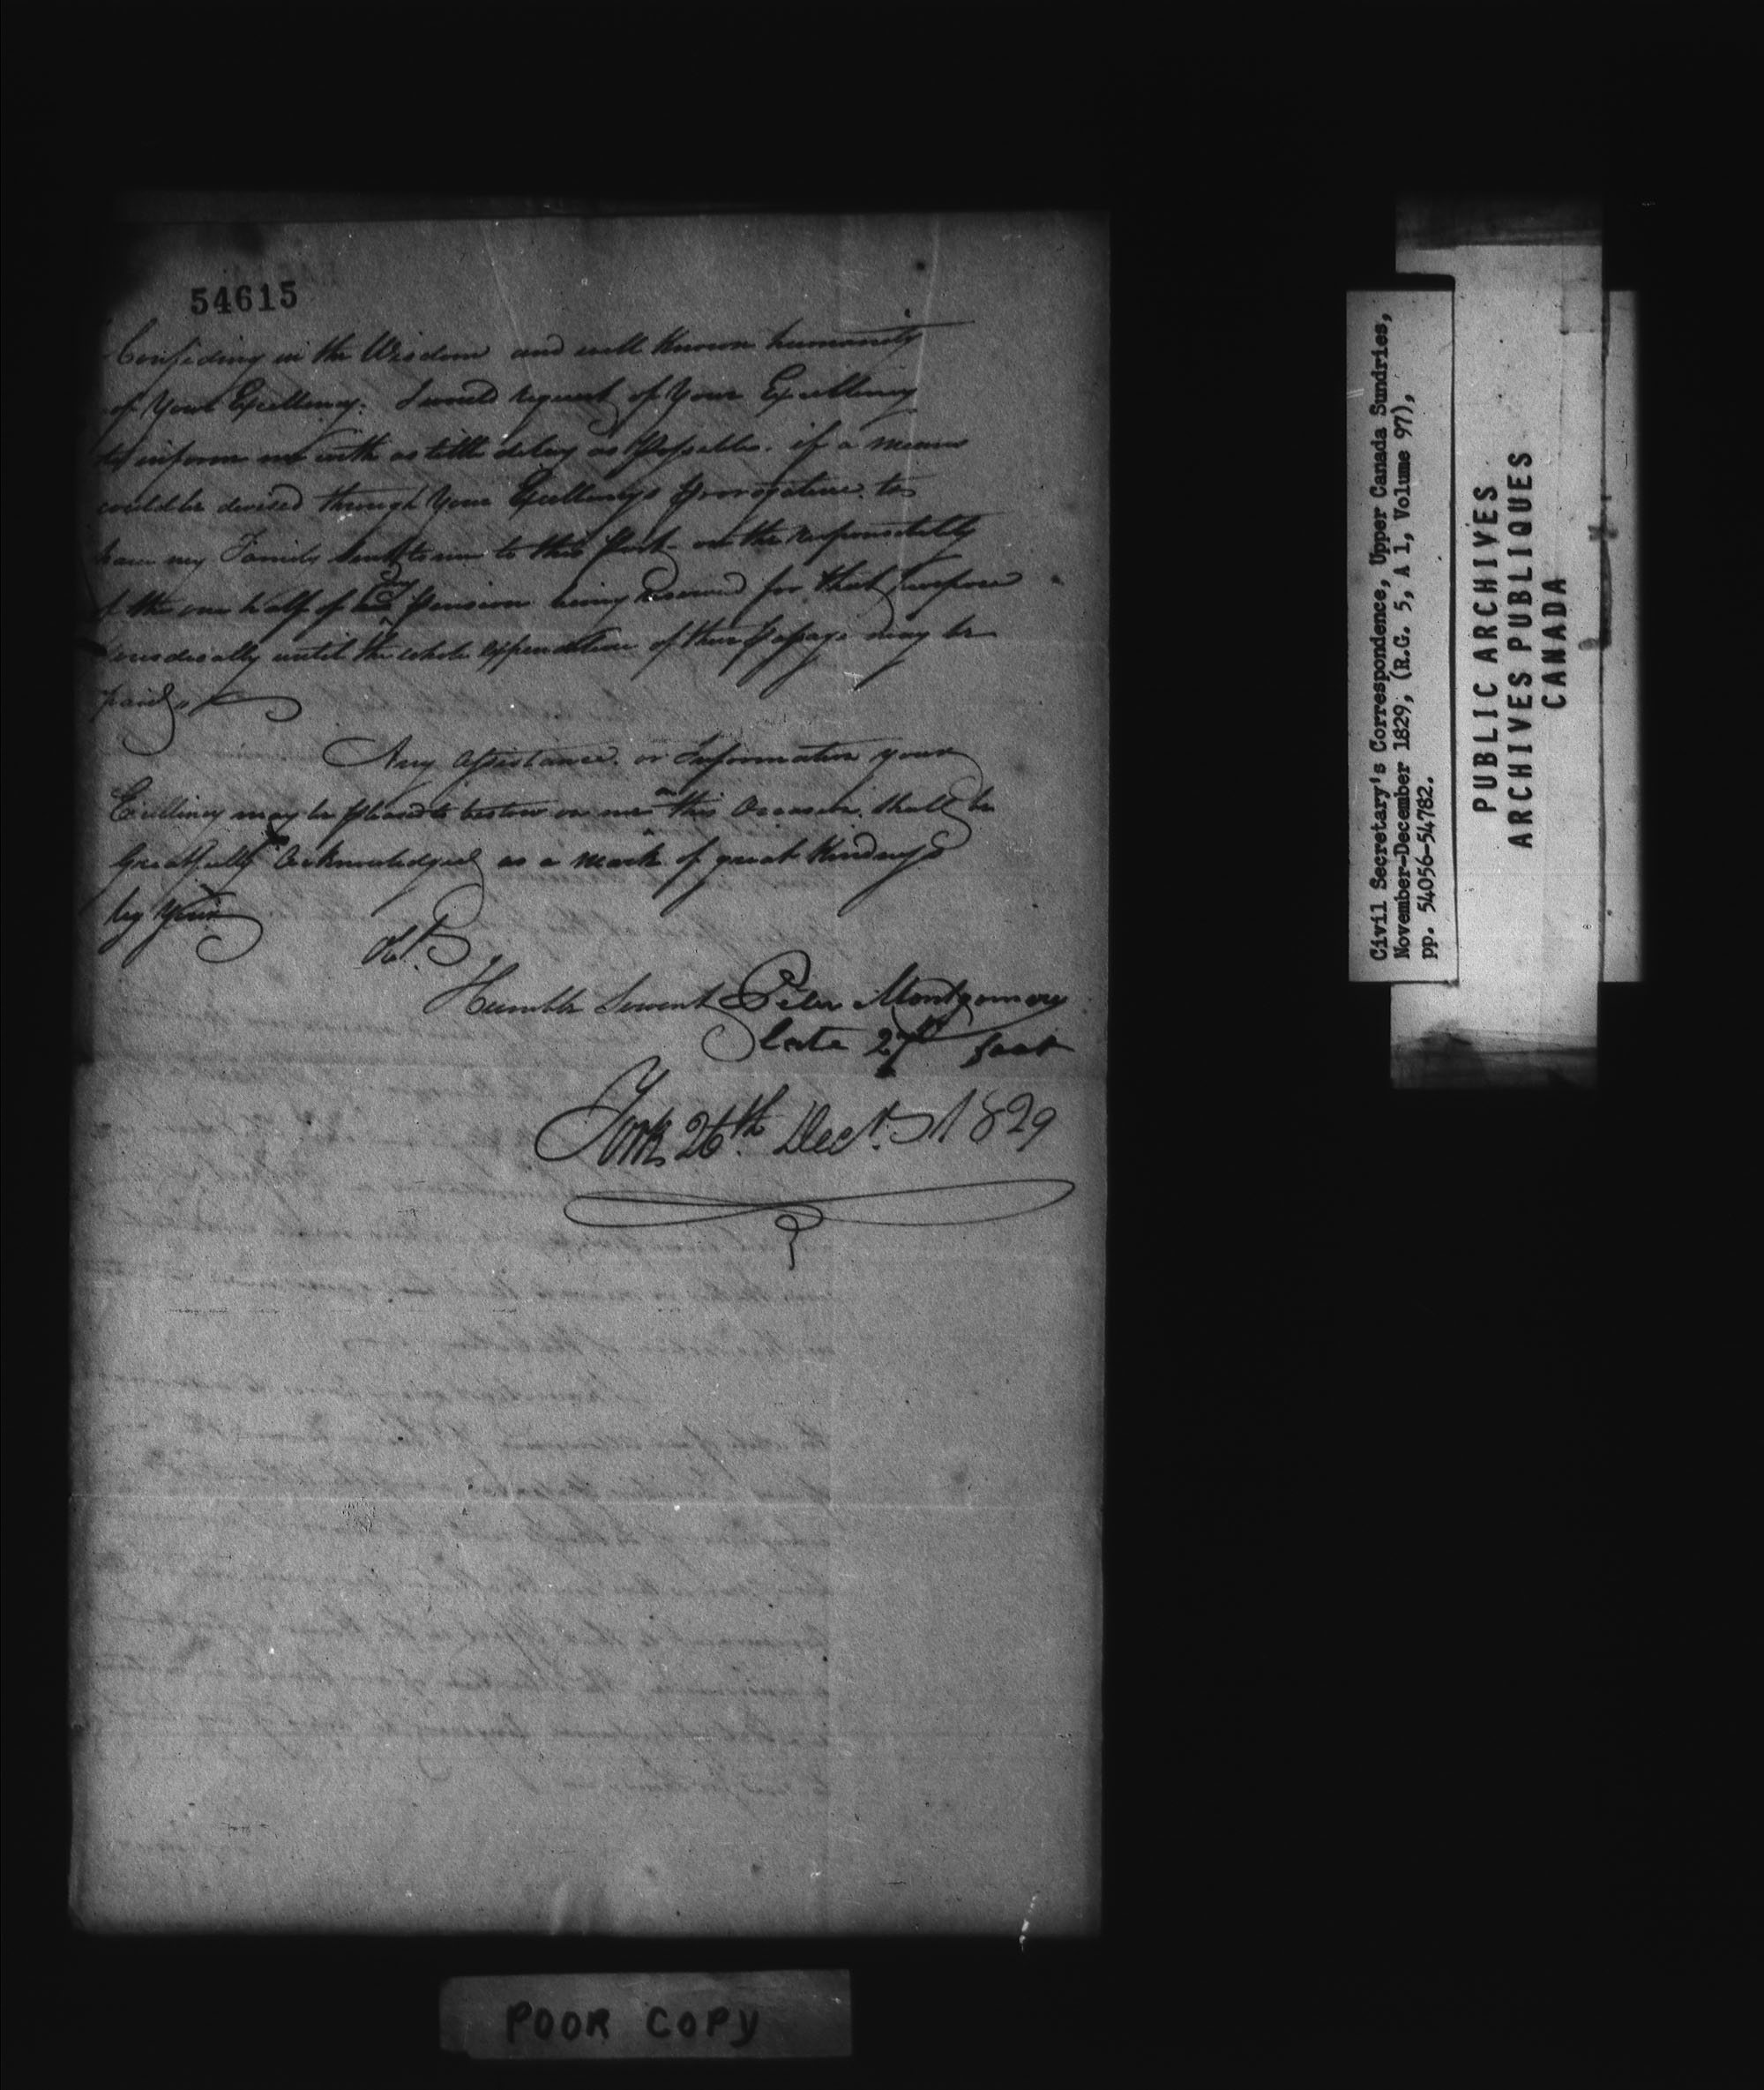 54615
Confiding in the Wisdom and well known humanity
of Your Excellency. I would request of Your Excellency
to inform me with as little delay as Possible. if a means
could be devised through Your Excellencys prerogative to
have my Family sent to me to this Port on the responsibility
of the one half of my Pension being reserved for that purpose
until the whole expenditure of their Passage may be
paid
Any Assistance or Information your
Excellency may be pleased to bestow on me on this Occasion shall be
Greatfully Acknowledged as a mark of great Kindness
by Your
Obt
Humble Servent Peter Montgomery
late 27th foot
York 26th Decr. 1829
POOR COPY
Civil Secretary's Correspondence, Upper Canada Sundries,
November-December 1829, (R.G. 5, A 1, Volume 97),
pp. 54056-54782.
PUBLIC ARCHIVES
ARCHIVES PUBLIQUES
CANADA